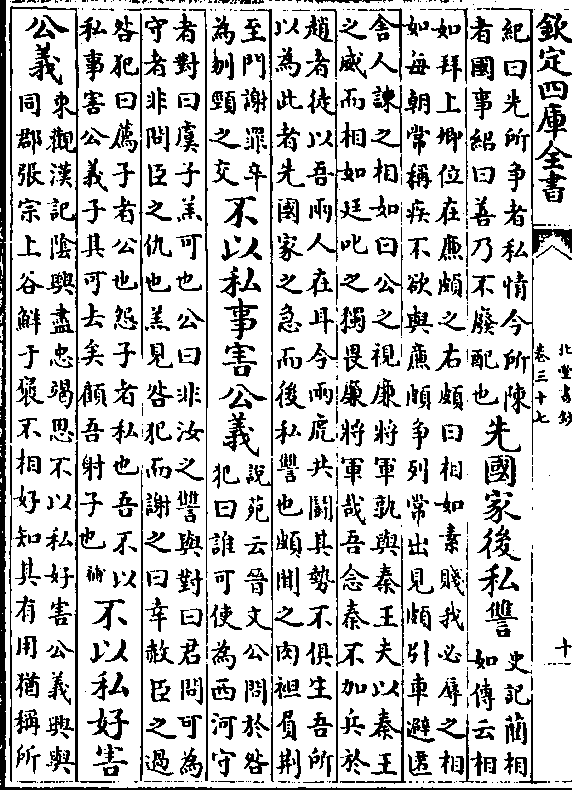 欽定四庫全書
北堂書鈔
卷三十七
十
紀曰先所争者私情今所陳
者國事紹曰善乃不廢配也
先國家後私讐
史記藺相
如傳云相
如拜上卿位在廉頗之右頗曰相如素賤我必辱之相
如每朝常稱疾不欲與廉頗争列常出見頗引車避匿
舍人諫之相如曰公之視廉將軍孰與秦王夫以秦王
之威而相如廷叱之獨畏廉將軍哉吾念秦不加兵於
趙者徒以吾兩人在耳今兩虎共鬭其勢不俱生吾所
以為此者先國家之急而後私讐也頗聞之肉袒負荆
至門謝罪卒
為刎頸之交
不以私事害公義
說苑云晉文公問於咎
犯曰誰可使為西河守
者對曰虞子羔可也公曰非汝之讐與對曰君問可為
守者非問臣之仇也羔見咎犯而謝之曰幸赦臣之過
咎犯曰薦子者公也怨子者私也吾不以
私事害公義子其可去矣顧吾射子也補
不以私好害
公義
東觀漢記陰興盡忠竭思不以私好害公義興與
同郡張宗上谷鮮于裒不相好知其有用猶稱所